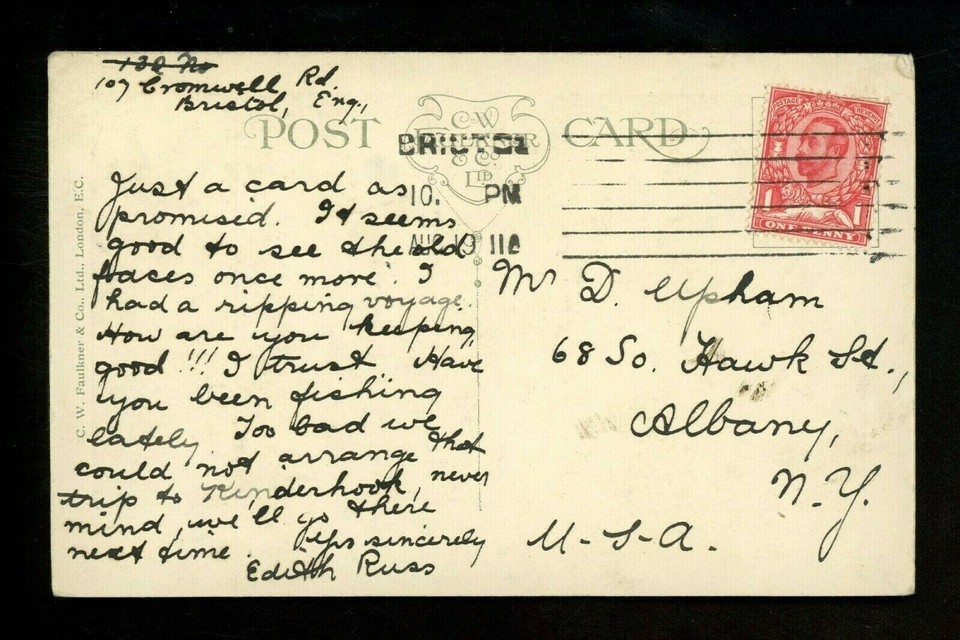 107 Cromwell Rd.
Bristol, Eng.,
POST CARD
C.W
FAULKNER
& Co.
LTD
BRISTOL
10. PM
AUG 19 11
POSTAGE REVENUE
1 1
ONE PENNY
C. W. Faulkner & Co., Ltd., London, E.C.
Just a card as
promised. It seems
good to see the old
faces once more. I
had a ripping voyage.
How are you keeping,
good!!! I trust. Have
you been fishing
lately Too bad we
could not arrange that
trip to Kinderhook, never
mind, we'll go there
next time. Yrs sincerely
Edith Russ
Mr D. Upham
68 So. Hawk St.,
Albany,
N.Y.
U-S-A.